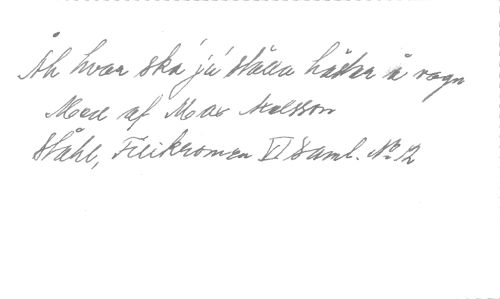 Åh hvar ska' ja' ställa hästar å vagn
Mel af Max Axelsson
Ståhl, Filikromen VI Saml. No 12